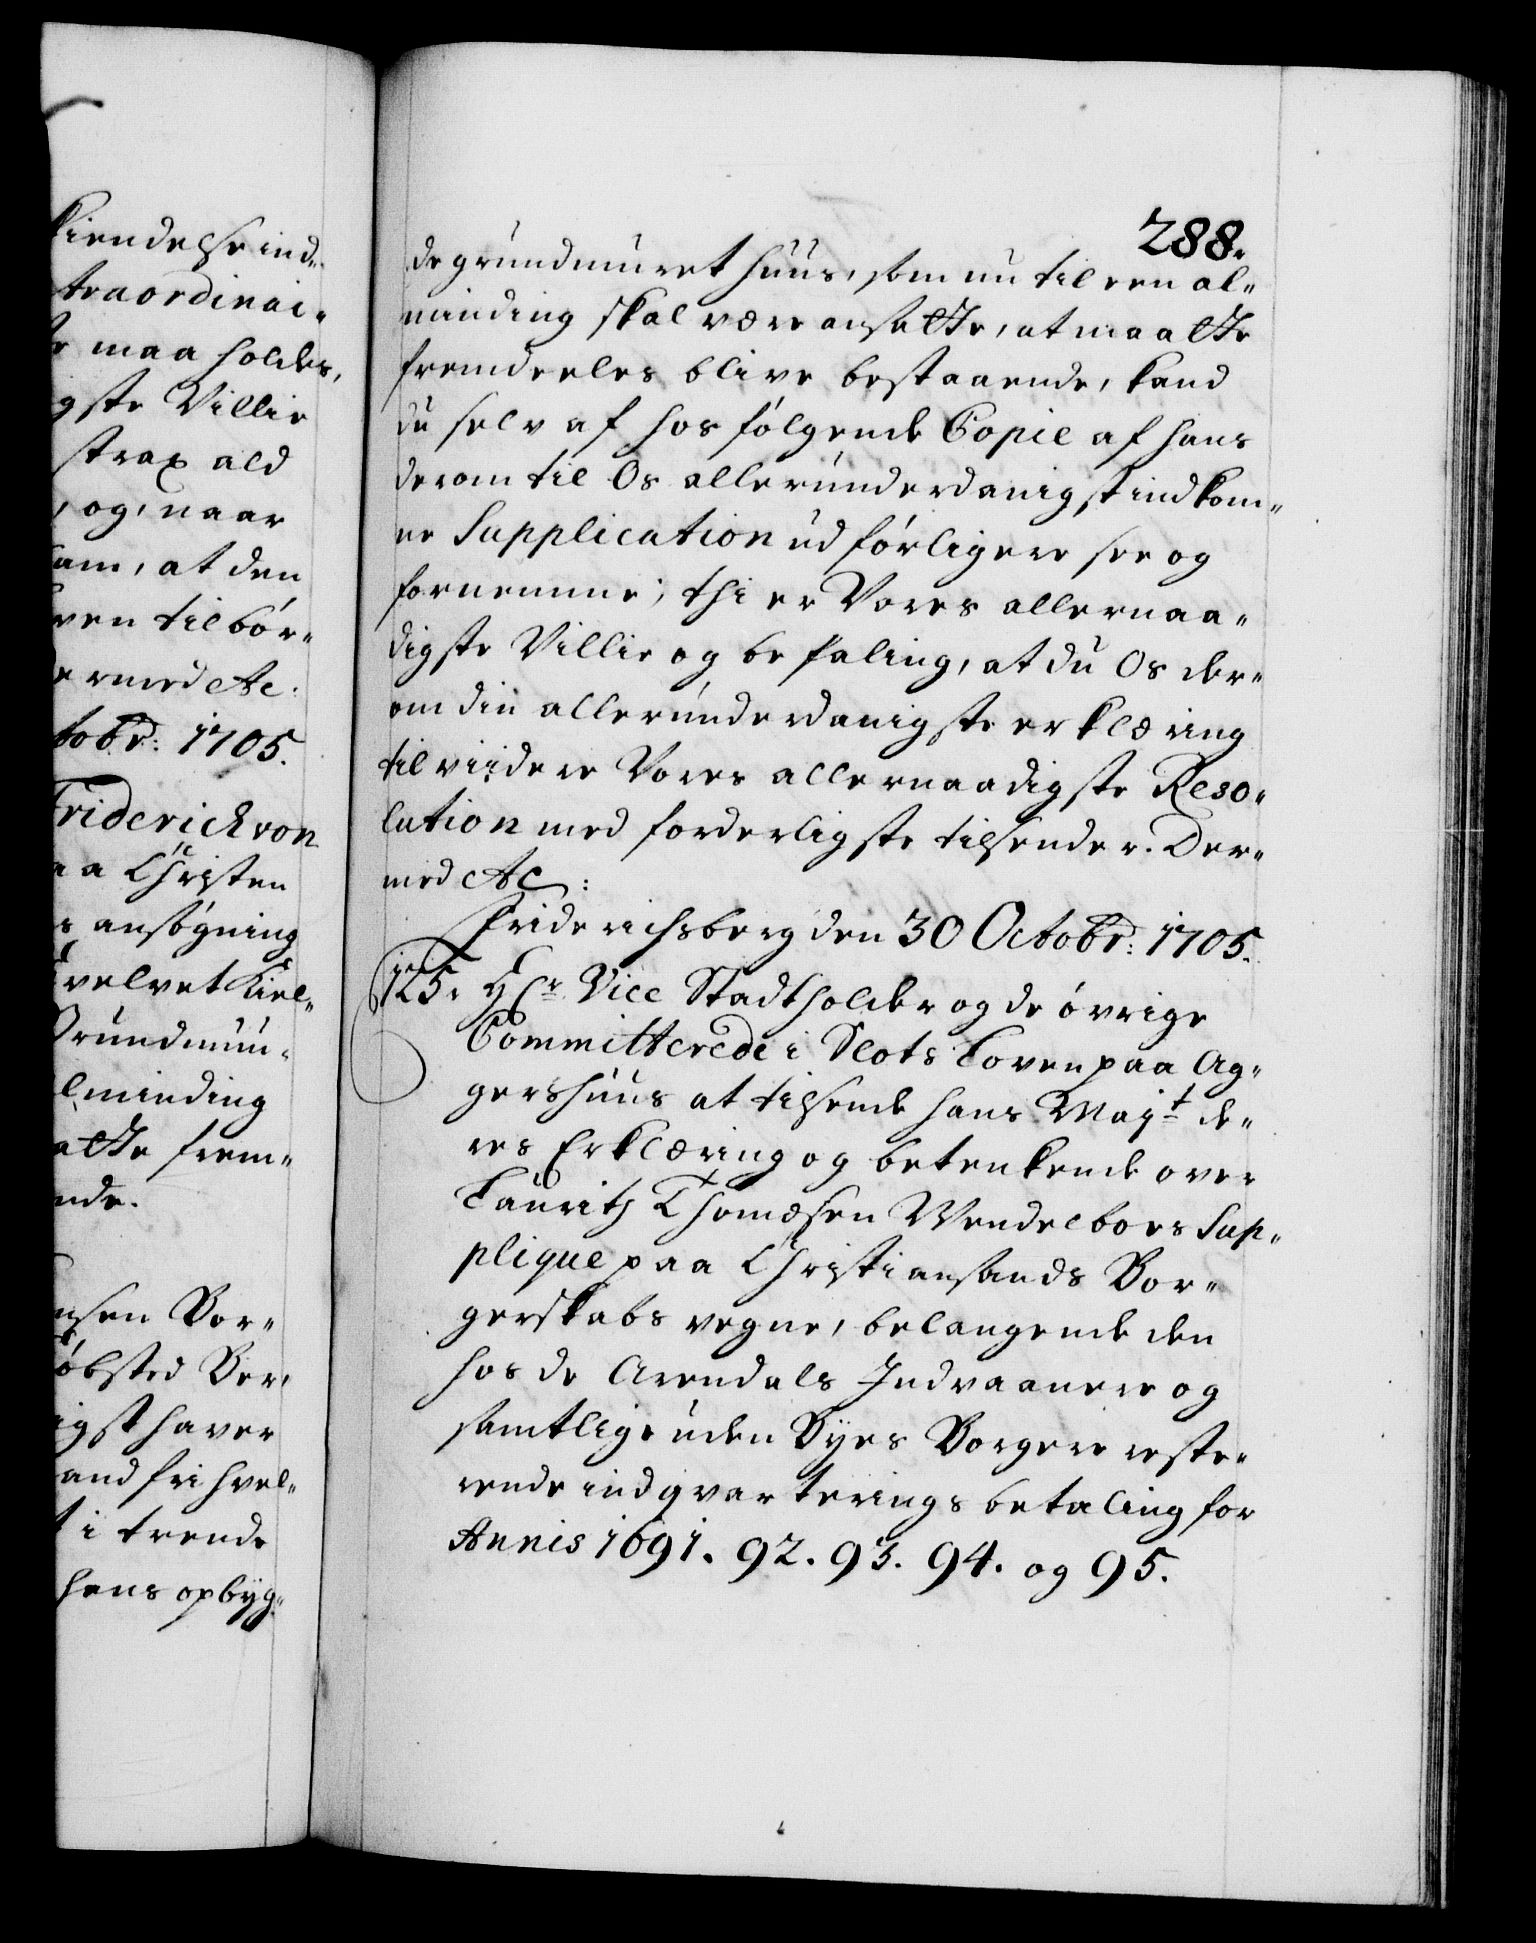 kiendelse ind-
traordinai-
maa holdes,
gste Villie
strax ald
, og, naar
am, at den
ven tilbør-
ermed &c:
tobr: 1705.
Friderich von
aa Christen
s ansøgning
velvet Kiel-
Grundmuu-
lminding
atte frem-
nde.
nsen Bor-
iøbsted Ber,
igst haver
and fri hvel-
t i trende
hans opbyg-
288.
de grundmuret huus, som nu til een al-
minding skal være ansatte, at maatte
fremdeeles blive bestaaende, kand
du selv af hosfølgende Copie af hans
derom til Os allerunderdanigst indkom-
ne Supplication udførligere see og
fornemme; thi er Vores allernaa-
digste Villie og befaling, at du Os der-
om din allerunderdanigste erklæring
til viidere Vores allernaadigste Reso-
lution med forderligste tilsender. Der-
med &c:
Friderichsberg den 30 Octobr: 1705.
125. Hr Vice Stadtholder og de øvrige
Committerede i Slots Loven paa Ag-
gershuus at tilsende hans Mayt de-
res Erklæring og betenkende over
Lauritz Thomæsen Wendelboes Sup-
plique paa Christiansands Bor-
gerskabs vegne, belangende den
hos de Arendals Indvaanere og
samtlige uden Byes Borgere reste-
rende indqvarterings betaling for
Annis 1691. 92. 93. 94. og 95.